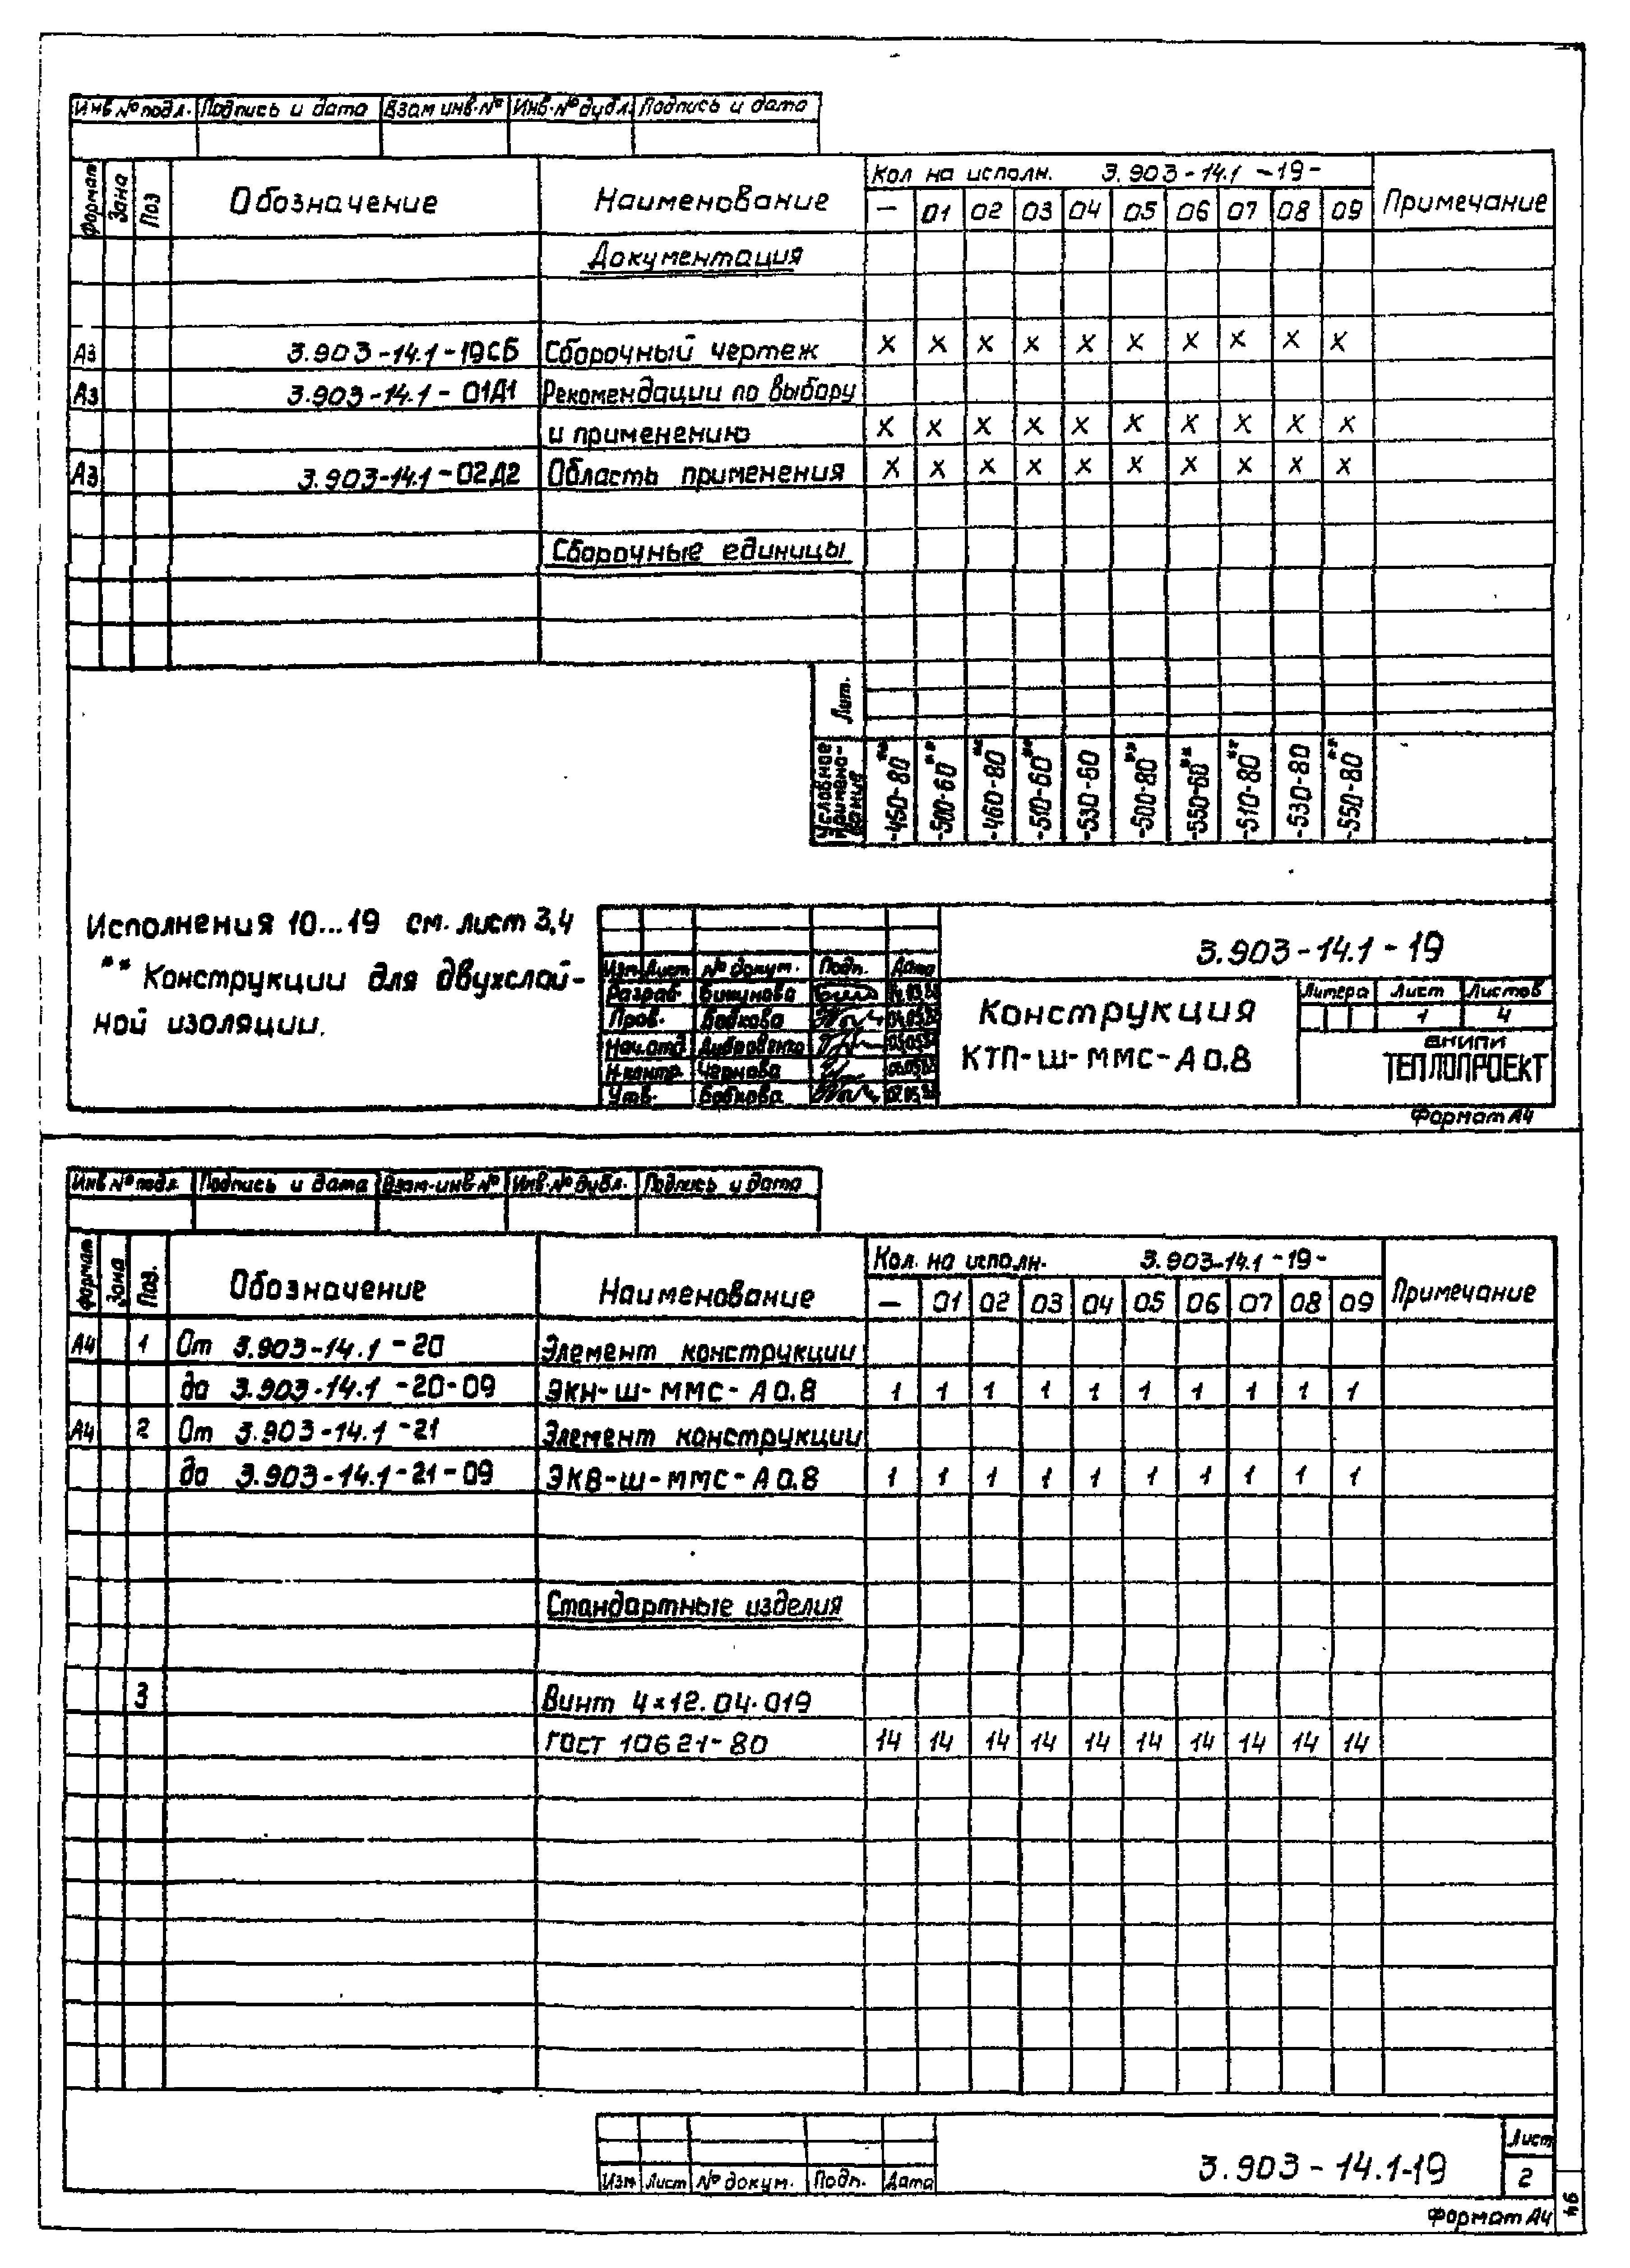 Инв № подл. Подпись и дата Взам инв. № Инв. № дубл. Подпись и дата
Формат Зона Поз Обозначение Наименование Кол на исполн. 3.903-14.1-19- Примечание
— 01 02 03 04 05 06 07 08 09
Документация
А3 3.903-14.1-19СБ Сборочный чертеж X X X X X X X X X X
А3 3.903-14.1-01Д1 Рекомендации по выбору
и применению X X X X X X X X X X
А3 3.903-14.1-02Д2 Область применения X X X X X X X X X X
Сборочные единицы
Лит.
Условное наимено-вание -450-80** -500-60** -460-80** -510-60** -530-60 -500-80** -550-60** -510-80** -530-80 -550-80**
Исполнения 10...19 см. лист 3,4
** Конструкции для двухслой-
ной изоляции.
3.903-14.1-19
Изм Лист № докум. Подп. Дата
Разраб. Бикунова
Пров. Бобкова
Нач.отд Дубровенко
Н.контр. Чернова
Утв. Бобкова
Конструкция
КТП-Ш-ММС-А0.8
Литера Лист Листов
1 4
ВНИПИ
ТЕПЛОПРОЕКТ
Формат А4
Инв № подл Подпись и дата Взам.инв № Инв.№ дубл. Подпись и дата
Формат Зона Поз. Обозначение Наименование Кол. на исполн. 3.903-14.1-19- Примечание
— 01 02 03 04 05 06 07 08 09
А4 1 От 3.903-14.1-20 Элемент конструкции
до 3.903-14.1-20-09 ЭКН-Ш-ММС-А0.8 1 1 1 1 1 1 1 1 1 1
А4 2 От 3.903-14.1-21 Элемент конструкции
до 3.903-14.1-21-09 ЭКВ-Ш-ММС-А0.8 1 1 1 1 1 1 1 1 1 1
Стандартные изделия
3 Винт 4×12.04.019
ГОСТ 10621-80 14 14 14 14 14 14 14 14 14 14
Изм Лист № докум. Подп. Дата
3.903-14.1-19
Лист
2
Формат А4
94